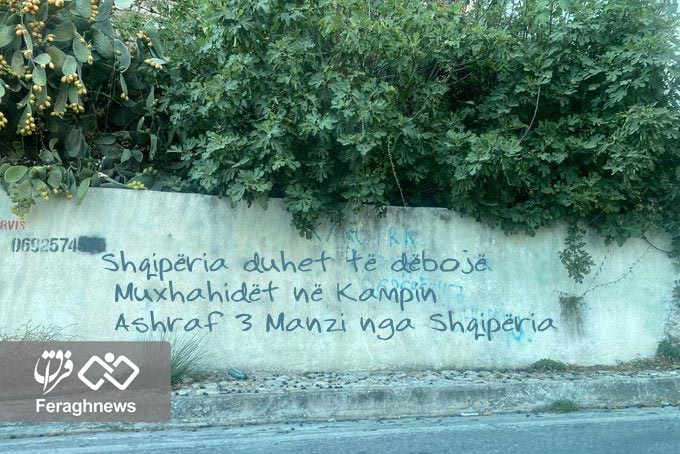 RVIS
0692574
Shqipëria duhet të dëbojë
Muxhahidët në Kampin
Ashraf 3 Manzi nga Shqipëria
فراق
Feraghnews